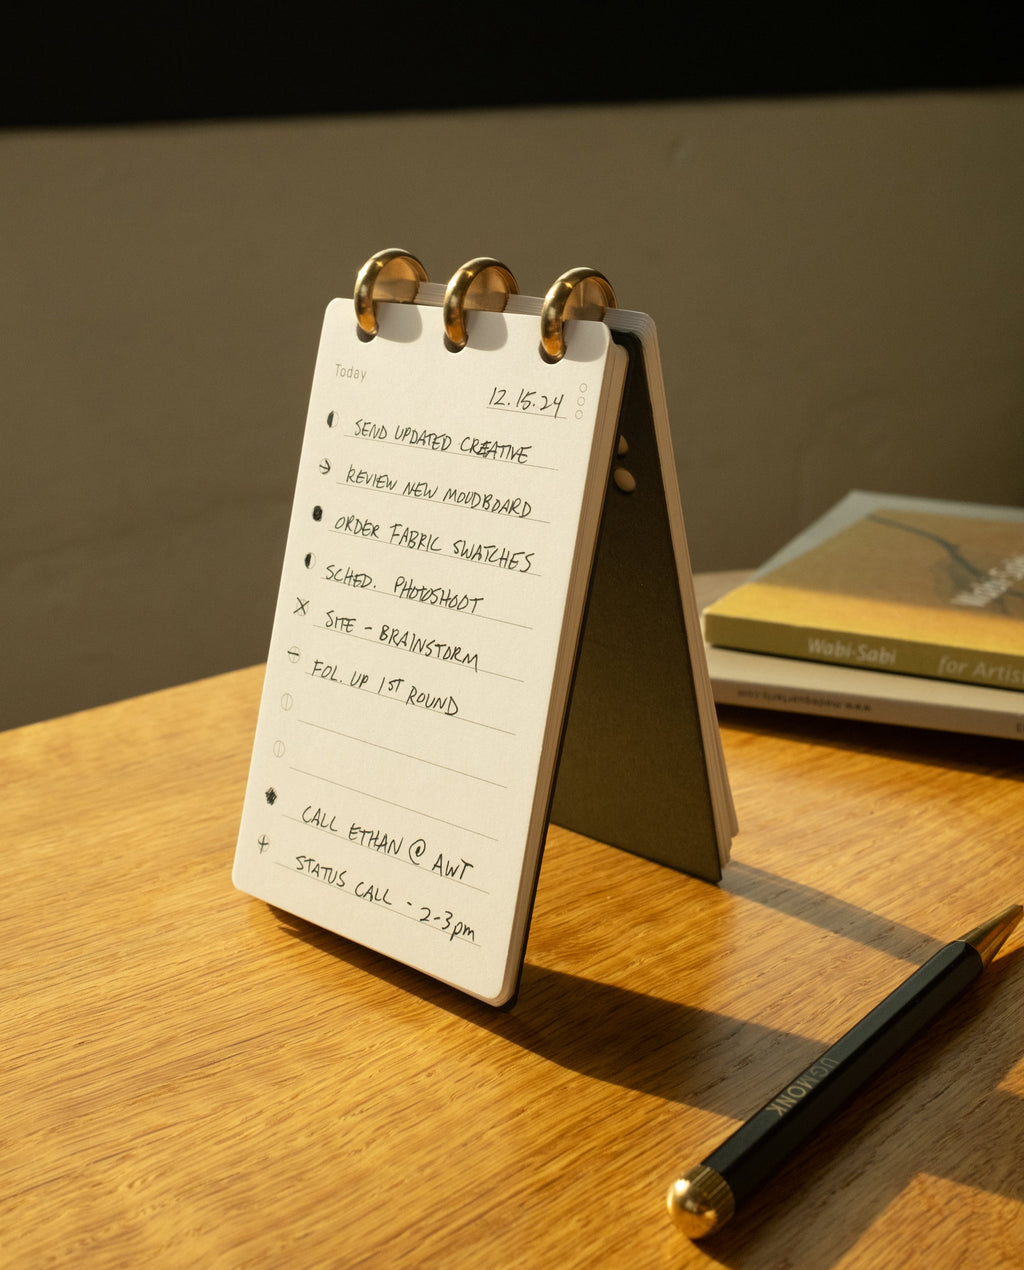 Today
12.15.24
SEND UPDATED CREATIVE
REVIEW NEW MOODBOARD
ORDER FABRIC SWATCHES
SCHED. PHOTOSHOOT
SITE - BRAINSTORM
FOL. UP 1ST ROUND
CALL ETHAN @ AWT
STATUS CALL - 2-3pm
Wabi-Sabi for Artis
UGMONK